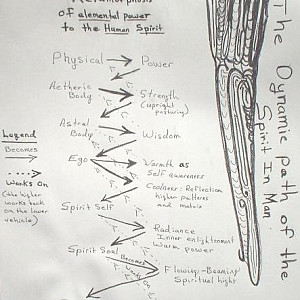 of elemental power
to the Human Spirit
Physical
Power
Aetheric
Body
Strength
(upright
posturing)
Astral
Body
Wisdom
Ego
Warmth as
Self awareness
Coolness: Reflection
higher patterns
and matrix
Spirit Self
Radiance
Inner enlightenment
Warm power
Spirit Soul
Becomes
Works On
Flowing-Beaming
Spiritual light
Legend
Becomes
Works On
(the higher
works back
on the lower
vehicle)
The Dynamic path of the
Spirit In Man